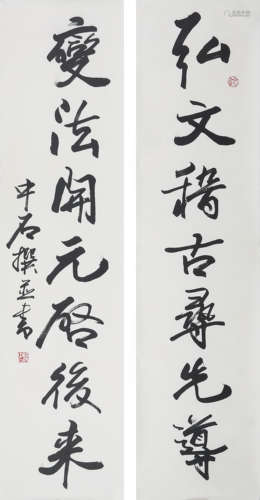 弘文稽古尋先導
變法開元啓後来
中石撰並書